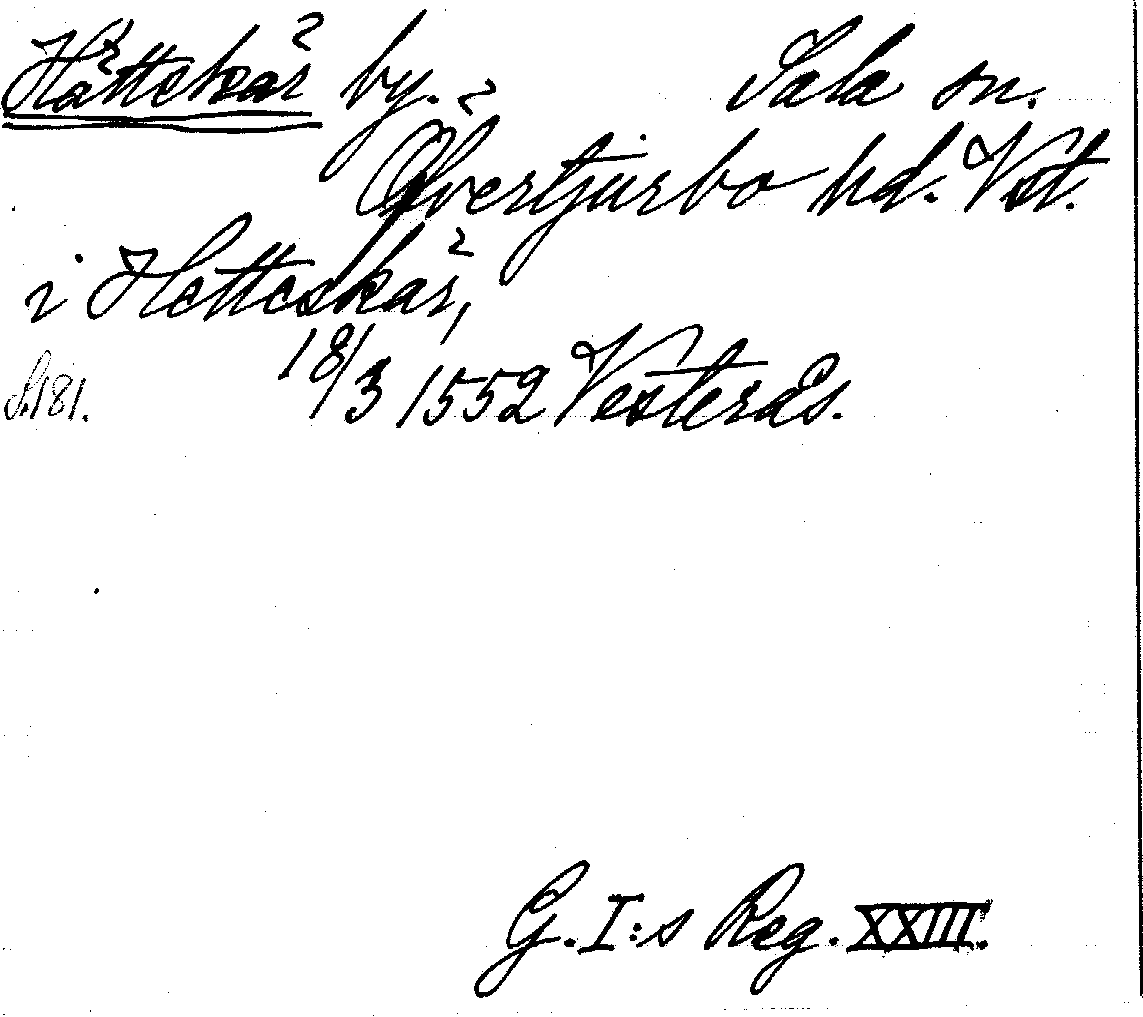 Hättekär by. Sala sn.
Övertjurbo hd. Vst.
i Hetteskär,
S.181. 18/3 1552 Vesterås.
G.I:s Reg. XXIII.